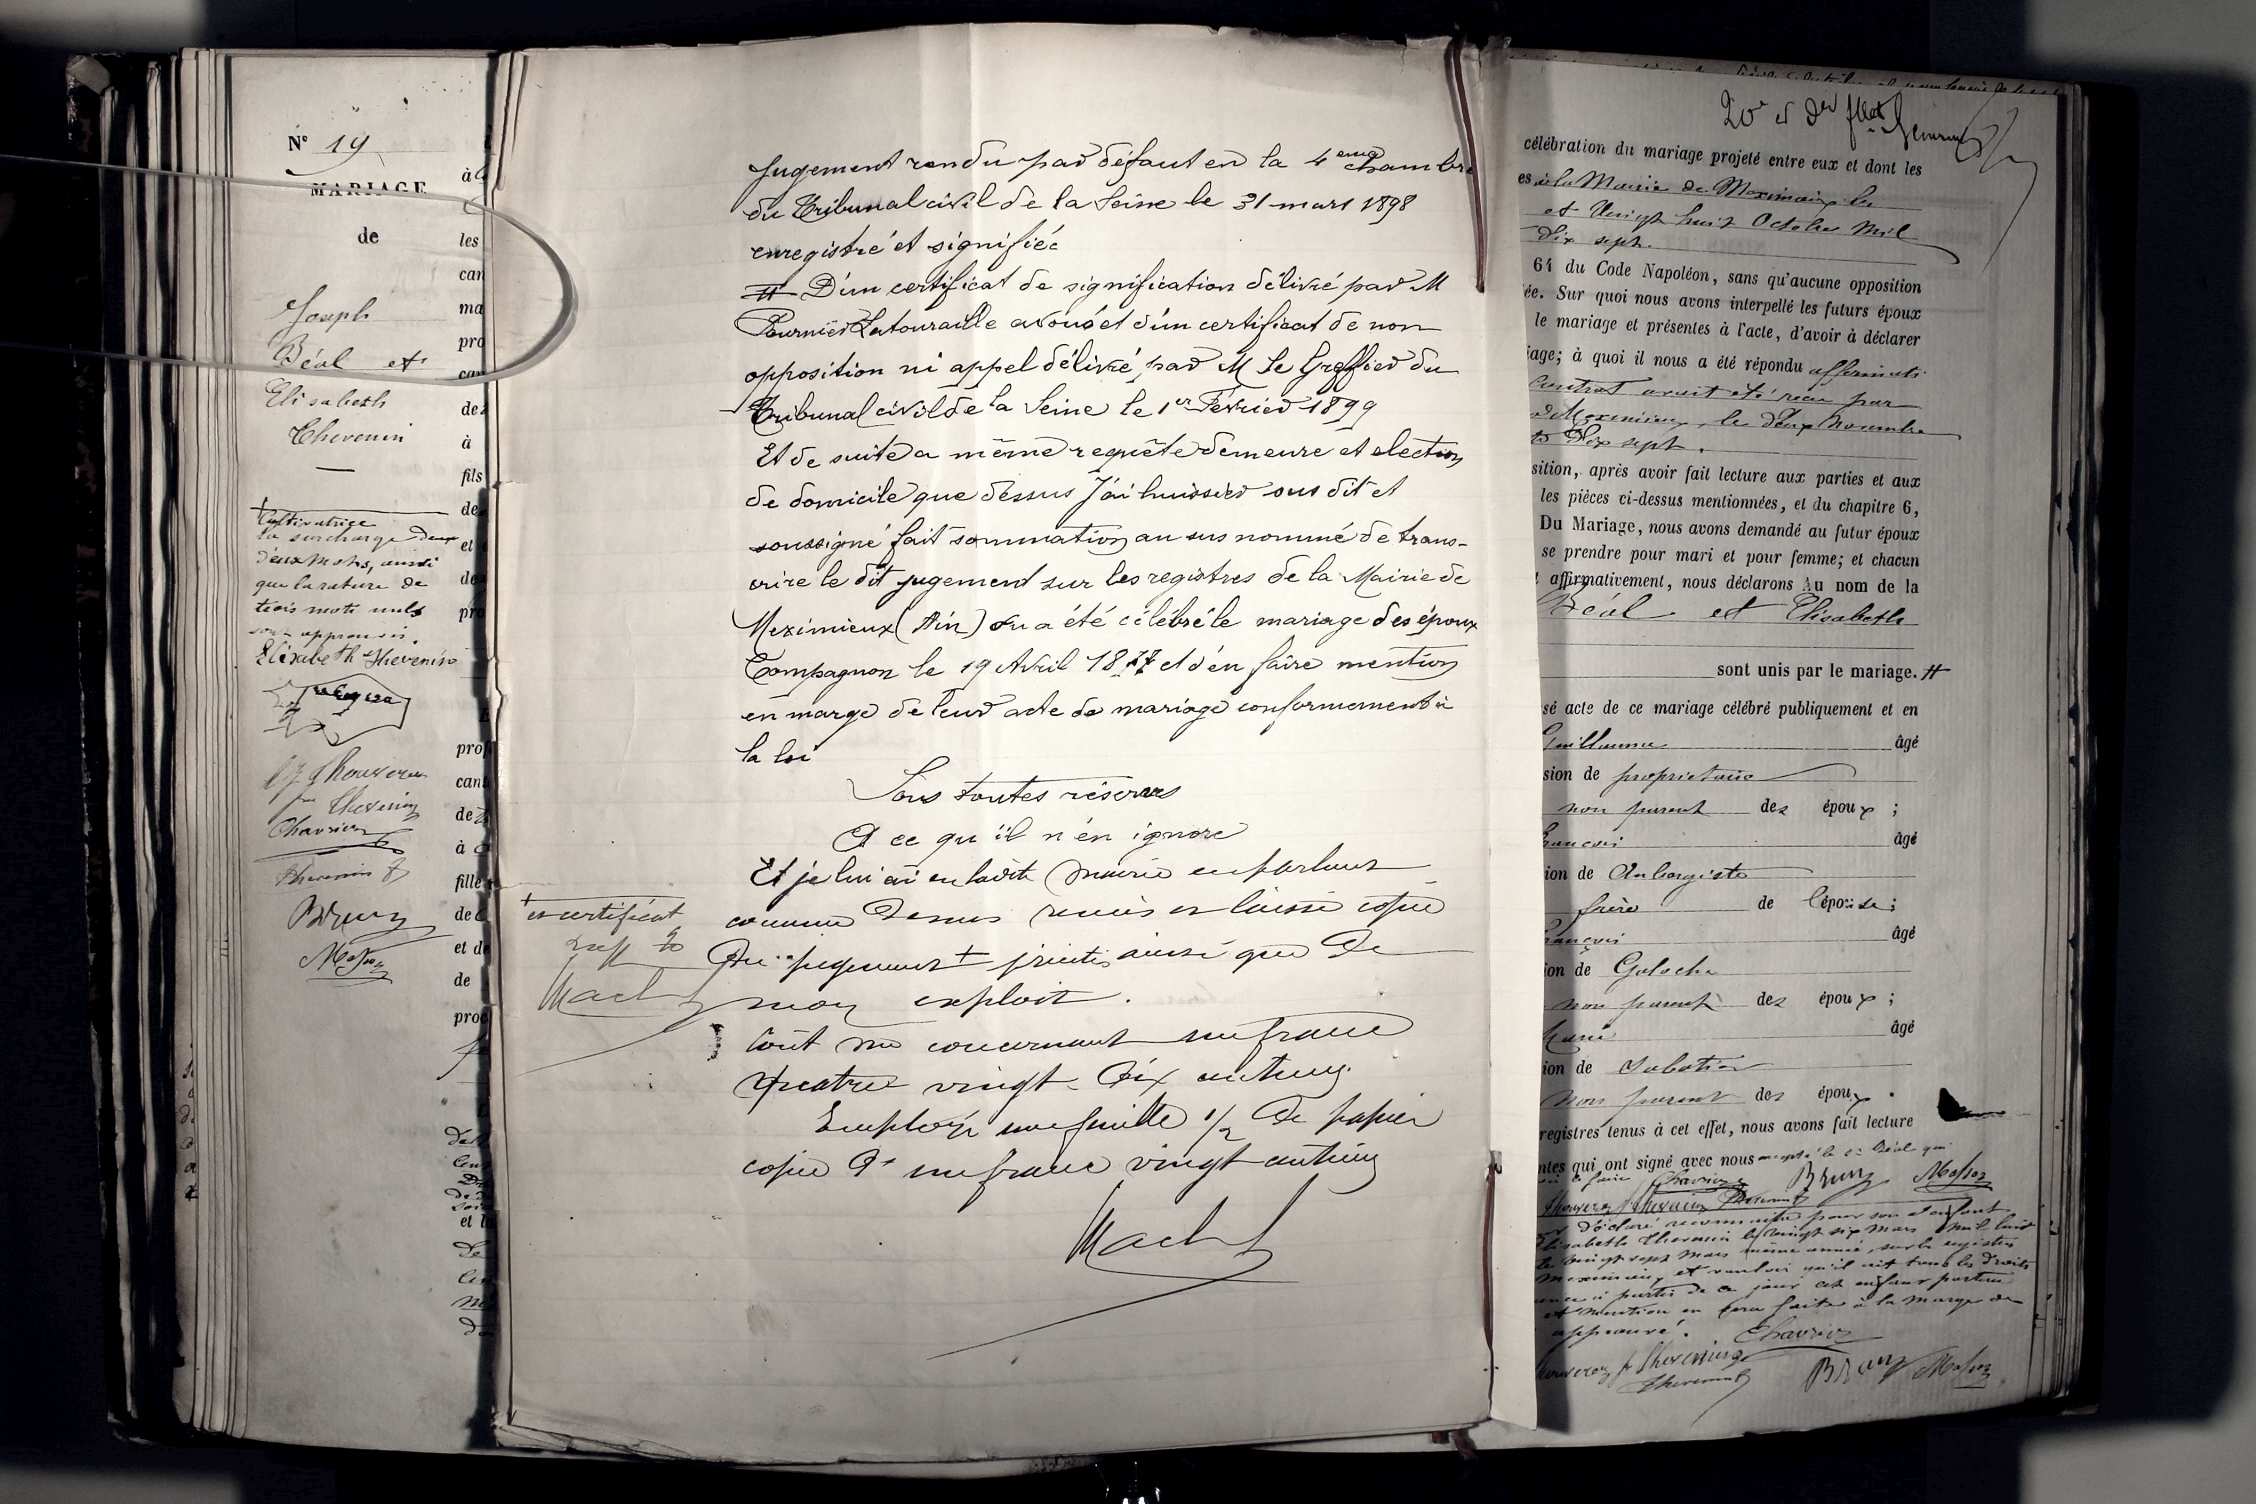 N° 19
MARIAGE
de
Joseph
Béal et
Elisabeth
Thevenin
Cultivatrice
la surcharge deux
deux mots, ainsi
que la rature de
trois mots nuls
sont approuvés.
Elisabeth Thevenin
Thouverez
Thevenin
Chavrier
Thevenin
Brun
à
les
can
ma
pro
can
de
à
fils
de
et
de
pro
prof
can
de
à
fille
de
et de
de
prof
jugement rendu par défaut en la 4eme chambre
du Tribunal civil de la Seine le 31 mars 1898
enregistré et signifiée
D'un certificat de signification délivré par M
Fournier Latouraille avoué et d'un certificat de non
opposition ni appel délivré par M le Greffier du
Tribunal civil de la Seine le 1er Février 1899
Et de suite a même requête demeure et election
de domicile que dessus J'ai huissier sus dit et
soussigné fait sommation au sus nommé de trans-
crire le dit jugement sur les registres de la Mairie de
Meximieux (Ain) ou a été célébré le mariage des époux
Compagnon le 19 Avril 1877 et d'en faire mention
en marge de leur acte de mariage conformement à
la loi
Sous toutes réserves
A ce qu'il n'en ignore
Et je lui ai en ladite mairie en parlant
comme dessus remis et laissé copie
Du jugement + précités ainsi que de
mon exploit.
Coût me concernant un franc
quatre vingt dix centimes
Employé une feuille 1/2 de papier
copie à un franc vingt centimes
+ et certificat
célébration du mariage projeté entre eux et dont les
es à la Mairie de Meximieux les
et Vingt huit Octobre Mil
dix sept.
64 du Code Napoléon, sans qu'aucune opposition
ée. Sur quoi nous avons interpellé les futurs époux
le mariage et présentes à l'acte, d'avoir à déclarer
iage; à quoi il nous a été répondu affirmati
Contrat avait été reçu par
à Meximieux, le deux Novembre
Dix sept.
sition, après avoir fait lecture aux parties et aux
les pièces ci-dessus mentionnées, et du chapitre 6,
Du Mariage, nous avons demandé au futur époux
se prendre pour mari et pour femme; et chacun
affirmativement, nous déclarons Au nom de la
Béal et Elisabeth
sont unis par le mariage. #
sé acte de ce mariage célébré publiquement et en
Guillaume âgé
sion de propriétaire
non parent des époux ;
François âgé
ion de Aubergiste
frère de l'épouse ;
François âgé
ion de Galoche
non parent des époux ;
âgé
ion de Sabotier
Non parent des époux.
registres tenus à cet effet, nous avons fait lecture
ntes qui ont signé avec nous excepté le Béal qui
Chavrier Brun
Thevenin
déclaré reconnaître pour son enfant
Elisabeth Thevenin le vingt six Mars Mil huit
le vingt sept Mars même année, sur le registre
Meximieux, et vouloir qu'il ait tous les droits
à partir de ce jour cet enfant portera
et mention en sera faite à la marge de
approuvé. Chavrier
Thevenin
Thevenin Brun